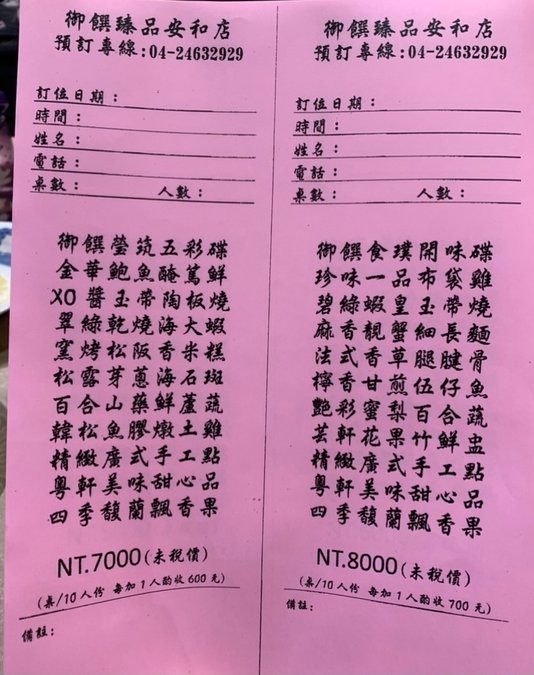 御饌臻品安和店
預訂專線:04-24632929
訂位日期：
時間：
姓名：
電話：
桌數：　人數：
御饌瑩筑五彩碟
金華鮑魚醃篤鮮
XO醬玉帶陶板燒
翠綠乾燒海大蝦
窯烤松阪香米糕
松露芽蔥海石斑
百合山藥鮮蘆蔬
韓松魚膠燉土雞
精緻廣式手工點
粵軒美味甜心品
四季馥蘭飄香果
NT.7000(未稅價)
(桌/10人份 每加1人酌收600元)
備註:
御饌臻品安和店
預訂專線:04-24632929
訂位日期：
時間：
姓名：
電話：
桌數：　人數：
御饌食璞開味碟
珍味一品布袋雞
碧綠蝦皇玉帶燒
麻香靚蟹細長麵
法式香草腿腱骨
檸香甘煎伍仔魚
艷彩蜜梨百合蔬
芸軒花果竹鮮盅
精緻廣式手工點
粵軒美味甜心品
四季馥蘭飄香果
NT.8000(未稅價)
(桌/10人份 每加1人酌收700元)
備註: